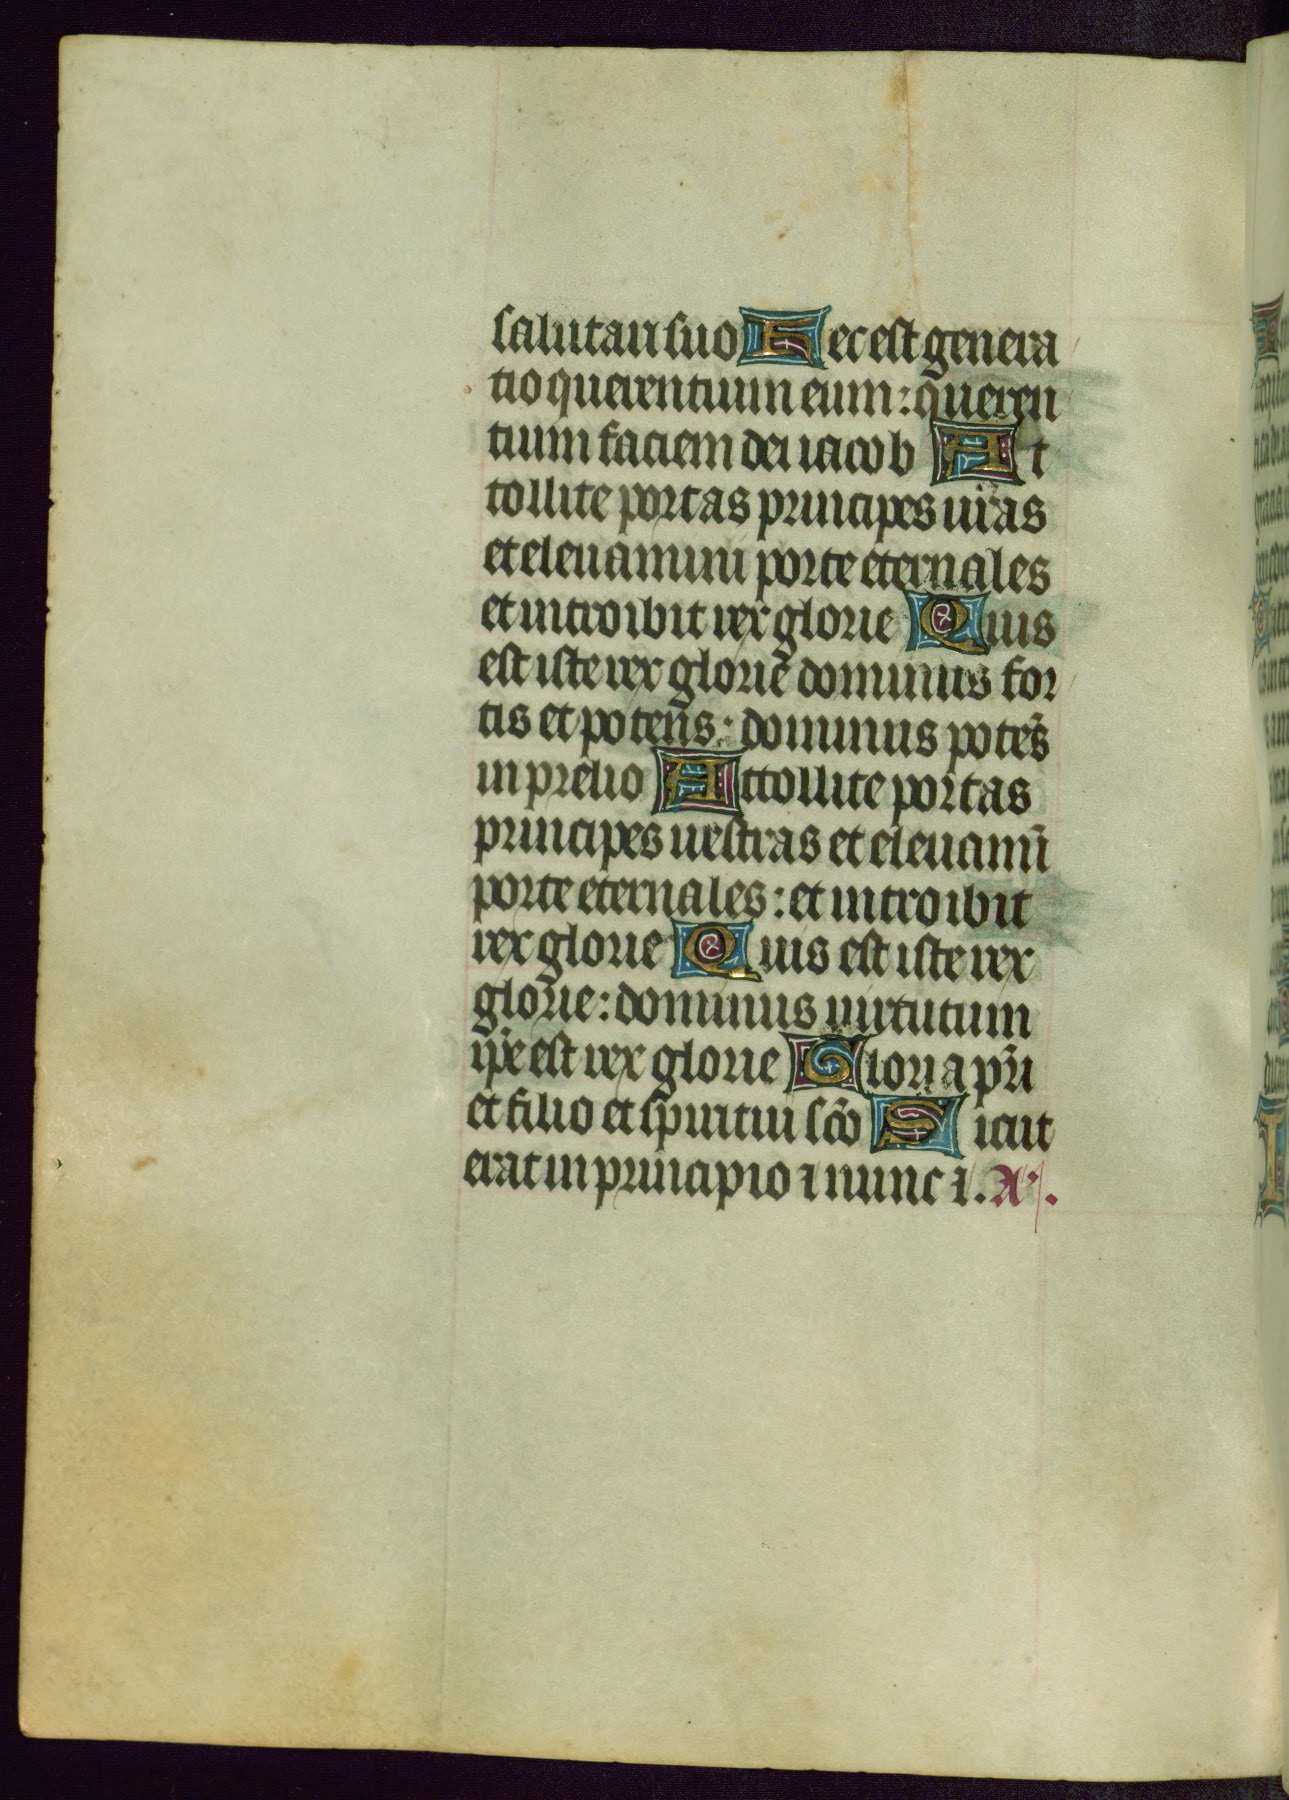 salutari suo Hec est genera
tio querentium eum: queren
tium faciem dei iacob At
tollite portas principes ur̄as
et eleuamini porte eternales
et introibit rex glorie Quis
est iste rex glorie dominus for
tis et potens: dominus potēs
in prelio Attollite portas
principes uestras et eleuamī
porte eternales: et introibit
rex glorie Quis est iste rex
glorie: dominus uirtutum
ip̄e est rex glorie Gloria pr̄i
et filio et spiritui sc̄o Sicut
erat in principio ⁊ nunc ⁊. A.